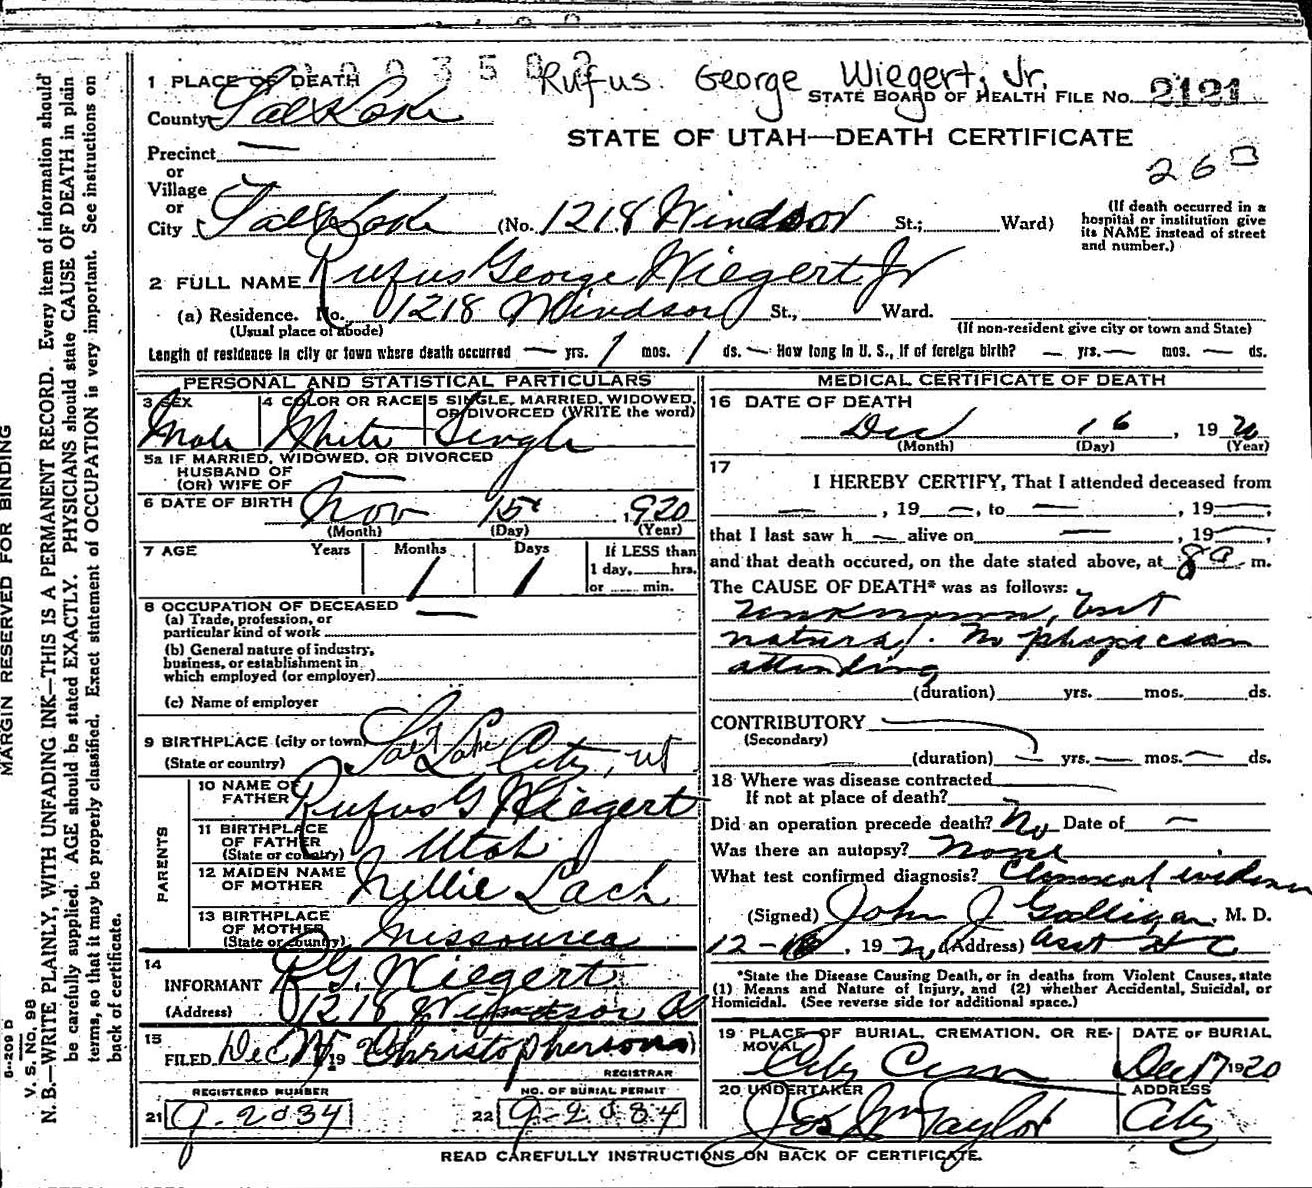 Rufus George Wiegert, Jr.
1 PLACE OF DEATH
STATE BOARD OF HEALTH FILE No. 2121
County Salt Lake
STATE OF UTAH—DEATH CERTIFICATE
Precinct —
or
Village
or
City Salt Lake (No. 1218 Windsor St.; Ward)
(If death occurred in a hospital or institution give its NAME instead of street and number.)
2 FULL NAME Rufus George Wiegert Jr
(a) Residence. No. 1218 Windsor St., Ward.
(Usual place of abode) (If non-resident give city or town and State)
Length of residence in city or town where death occurred — yrs. 1 mos. 1 ds. — How long in U. S., if of foreign birth? — yrs. — mos. — ds.
PERSONAL AND STATISTICAL PARTICULARS
3 SEX Male
4 COLOR OR RACE White
5 SINGLE, MARRIED, WIDOWED, OR DIVORCED (WRITE the word) Single
5a IF MARRIED, WIDOWED, OR DIVORCED
HUSBAND OF
(OR) WIFE OF —
6 DATE OF BIRTH Nov 15 1920
(Month) (Day) (Year)
7 AGE Years Months 1 Days 1
If LESS than
1 day, hrs.
or min.
8 OCCUPATION OF DECEASED —
(a) Trade, profession, or
particular kind of work
(b) General nature of industry,
business, or establishment in
which employed (or employer)
(c) Name of employer
9 BIRTHPLACE (city or town) Salt Lake City, ut
(State or country)
PARENTS
10 NAME OF FATHER Rufus G Wiegert
11 BIRTHPLACE OF FATHER (State or country) Utah
12 MAIDEN NAME OF MOTHER Nellie Lach
13 BIRTHPLACE OF MOTHER (State or country) Missourea
14
INFORMANT R G. Wiegert
(Address) 1218 Windsor
15
FILED Dec 19 Christopherson
REGISTRAR
REGISTERED NUMBER
21 9-2034
NO. OF BURIAL PERMIT
22 9-2084
MEDICAL CERTIFICATE OF DEATH
16 DATE OF DEATH
Dec 16, 1920
(Month) (Day) (Year)
17
I HEREBY CERTIFY, That I attended deceased from
—, 19—, to —, 19—,
that I last saw h— alive on —, 19—,
and that death occured, on the date stated above, at 8 a m.
The CAUSE OF DEATH* was as follows:
unknown, but
natural. No physician
attending
(duration) yrs. mos. ds.
CONTRIBUTORY
(Secondary)
(duration) — yrs. — mos. — ds.
18 Where was disease contracted
If not at place of death?
Did an operation precede death? No Date of —
Was there an autopsy? None
What test confirmed diagnosis? Clinical evidence
(Signed) John J Galligan, M. D.
12-16, 1920 (Address) Asst H C
*State the Disease Causing Death, or in deaths from Violent Causes, state
(1) Means and Nature of Injury, and (2) whether Accidental, Suicidal, or
Homicidal. (See reverse side for additional space.)
19 PLACE OF BURIAL, CREMATION, OR REMOVAL City Cem
DATE OF BURIAL Dec 17 1920
20 UNDERTAKER Jos Wm Taylor
ADDRESS City
READ CAREFULLY INSTRUCTIONS ON BACK OF CERTIFICATE.
MARGIN RESERVED FOR BINDING
V. S. No. 98
N. B.—WRITE PLAINLY, WITH UNFADING INK—THIS IS A PERMANENT RECORD. Every item of information should
be carefully supplied. AGE should be stated EXACTLY. PHYSICIANS should state CAUSE OF DEATH in plain
terms, so that it may be properly classified. Exact statement of OCCUPATION is very important. See instructions on
back of certificate.